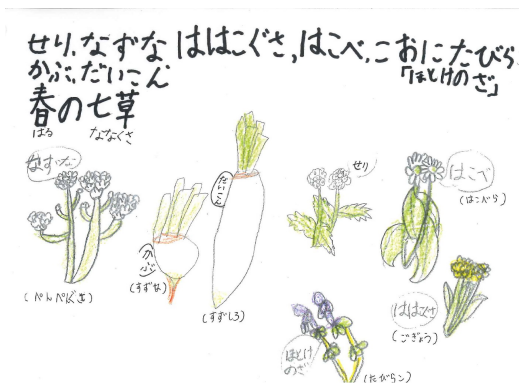 せり,なずな ははこぐさ,はこべ,こおにたびら
かぶ,だいこん
「ほとけのざ」
春の七草
はる ななくさ
なずな
(ぺんぺんぐさ)
かぶ
(すずな)
だいこん
(すずしろ)
せり
はこべ
(はこべら)
ははこぐさ
(ごぎょう)
ほとけ
のざ
(たびらこ)